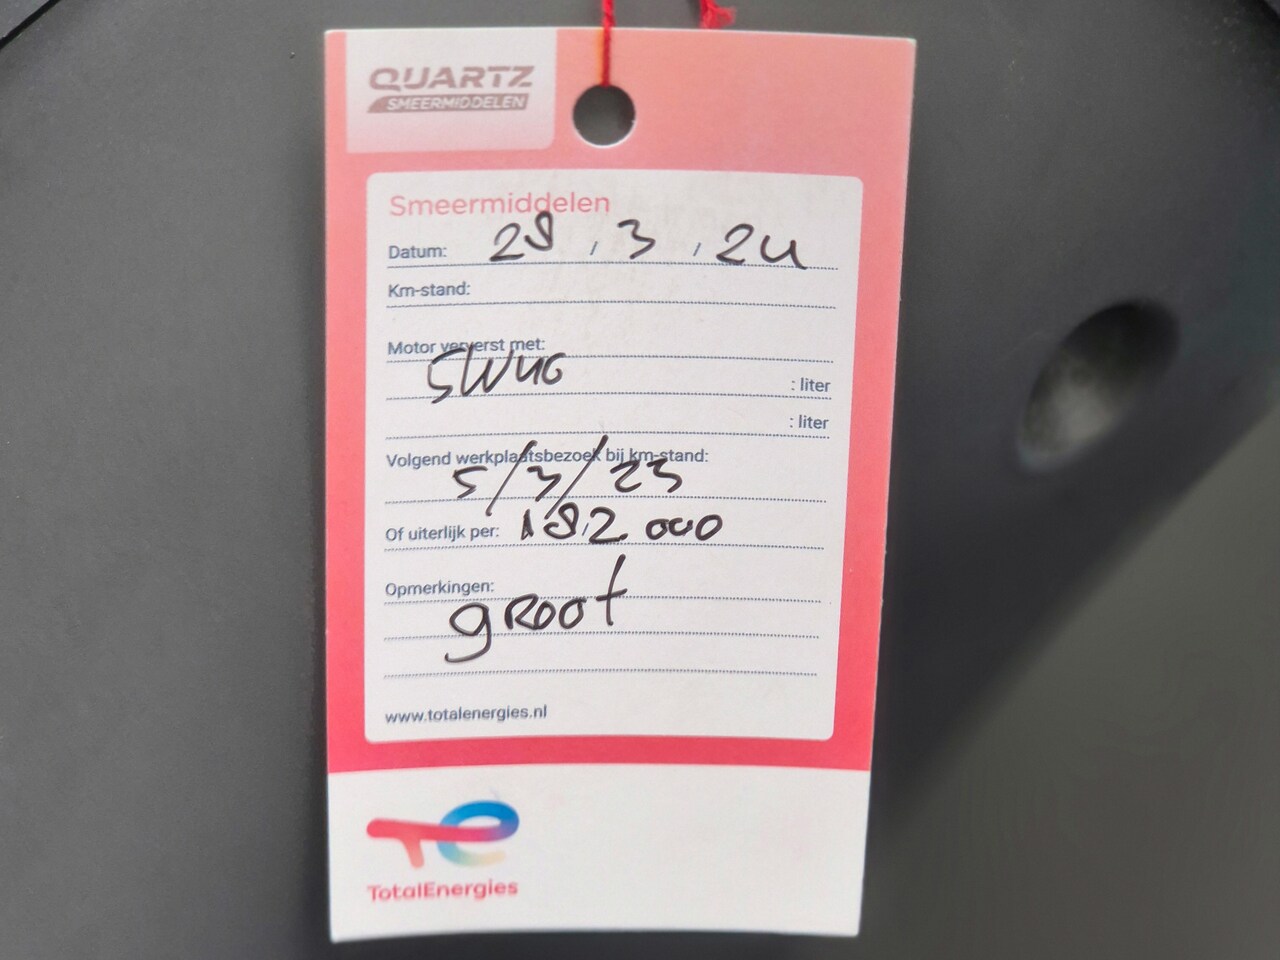 QUARTZ
SMEERMIDDELEN
Smeermiddelen
Datum: 28 / 3 / 24
Km-stand:
Motor ververst met:
5W40 : liter
: liter
Volgend werkplaatsbezoek bij km-stand:
5/3/25
Of uiterlijk per: 182.000
Opmerkingen:
groot
www.totalenergies.nl
TotalEnergies